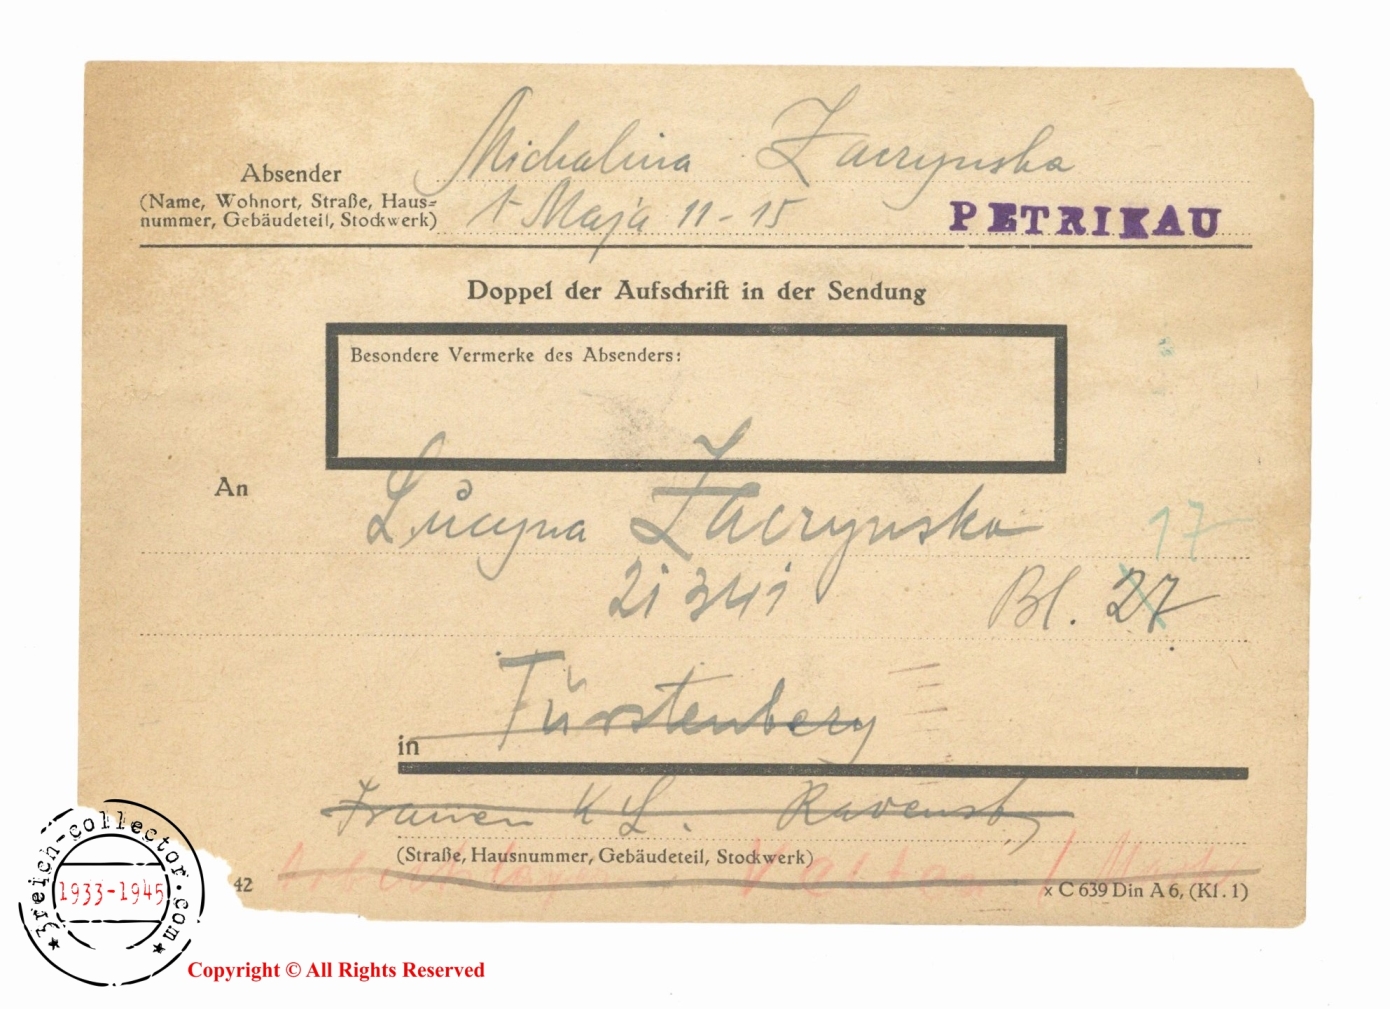 Michalina Zaczynska
Absender
(Name, Wohnort, Straße, Haus=
nummer, Gebäudeteil, Stockwerk)
1-Maja 11-15
PETRIKAU
Doppel der Aufschrift in der Sendung
Besondere Vermerke des Absenders:
An
Lucyna Zaczynska
17
21341 Bl. 27
in Fürstenberg
Frauen K L. Ravensb
(Straße, Hausnummer, Gebäudeteil, Stockwerk)
42
x C 639 Din A 6, (Kl. 1)
3reich-collector.com
1933-1945
Copyright © All Rights Reserved